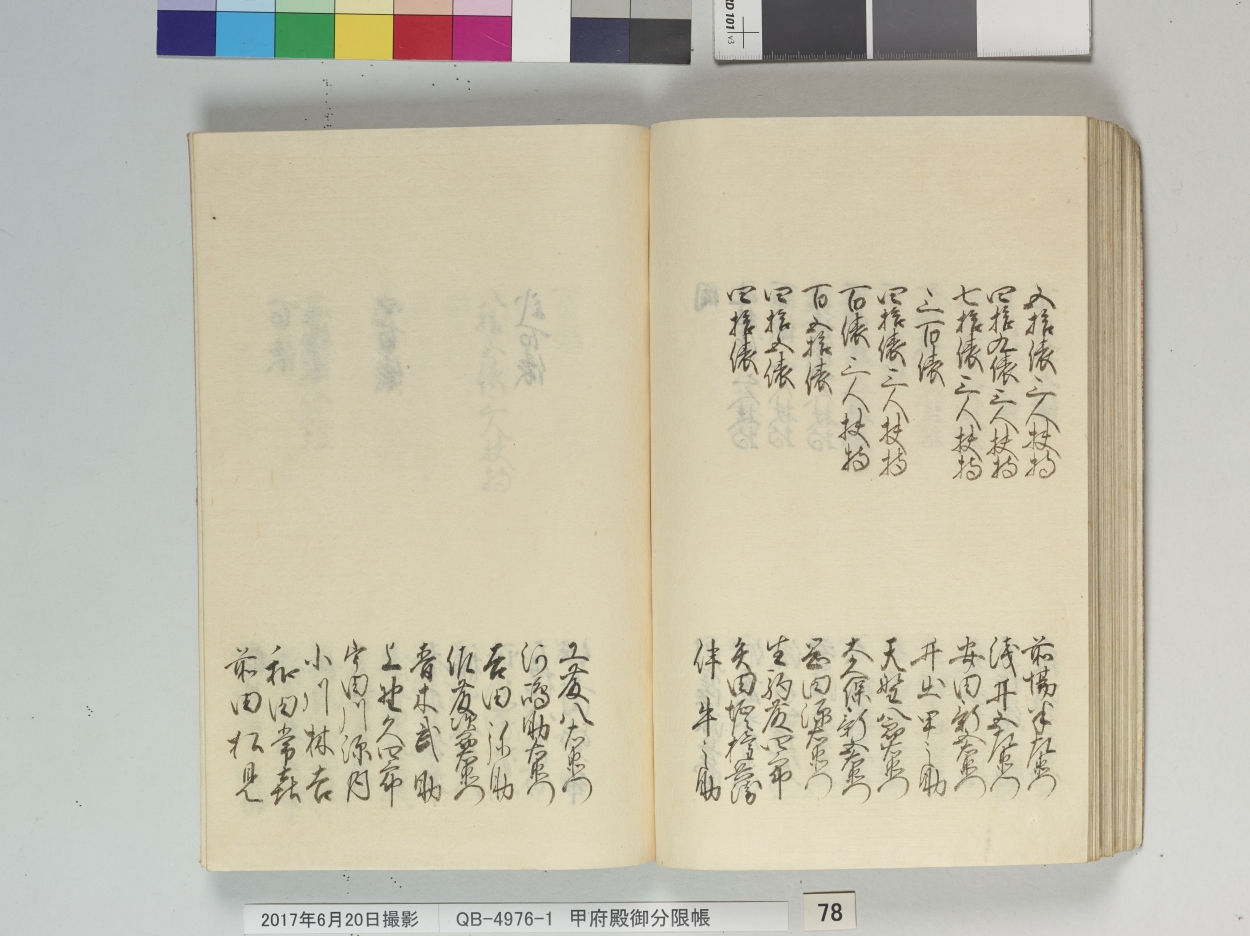 五拾俵三人扶持
四拾九俵三人扶持
七拾俵三人扶持
三百俵
四拾俵三人扶持
百俵三人扶持
百五拾俵
四拾五俵
四拾俵
前場半左衛門
浅井五左衛門
安田新右衛門
井出甲之助
天野八郎右衛門
大久保新五右衛門
岡田源右衛門
生駒藤四郎
矢田
伴牛之助
工藤八右衛門
河嶋助右衛門
吉田弥助
佐藤源五右衛門
青木武助
上野久四郎
宇田川源内
小川林吉
和田常喜
前田松見
2017年6月20日撮影 QB-4976-1 甲府殿御分限帳
78